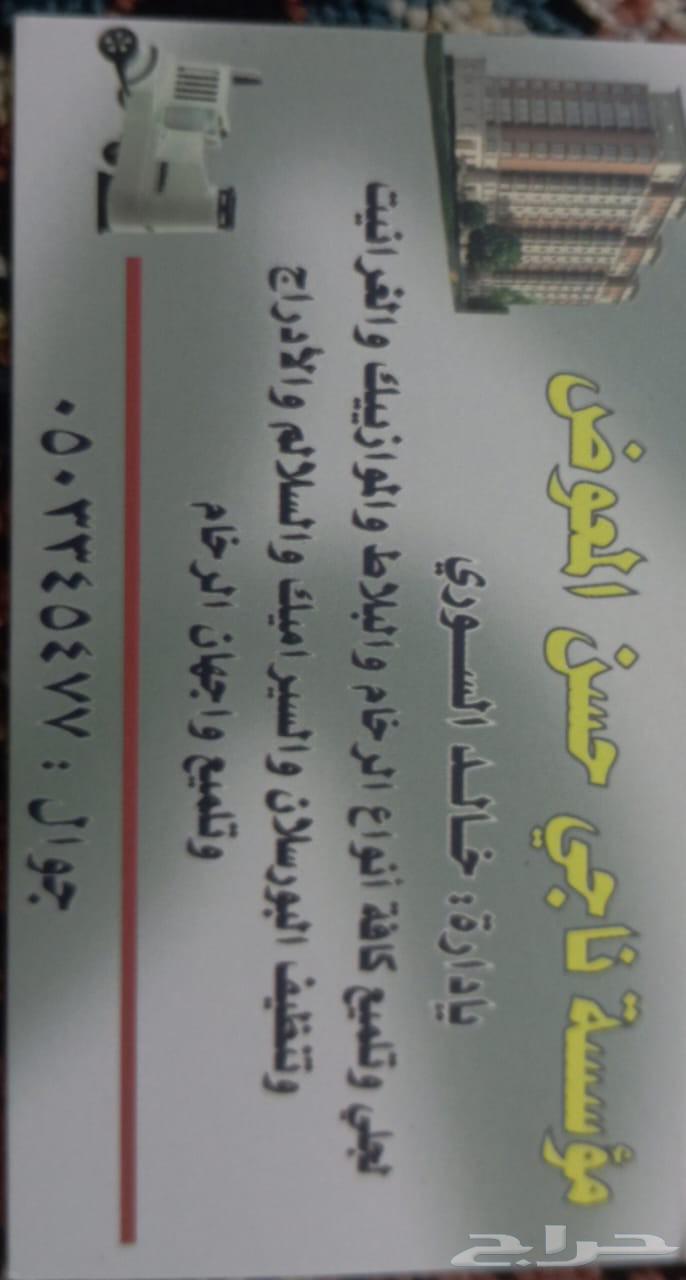 مؤسسة ناجي حسن المعوض
بإدارة: خالد السوري
لجلي وتلميع كافة أنواع الرخام والبلاط والموازييك والغرانيت
وتنظيف البورسلان والسيراميك والسلالم والأدراج
وتلميع واجهان الرخام
جوال : ٠٥٠٣٣٤٥٤٧٧
حراج